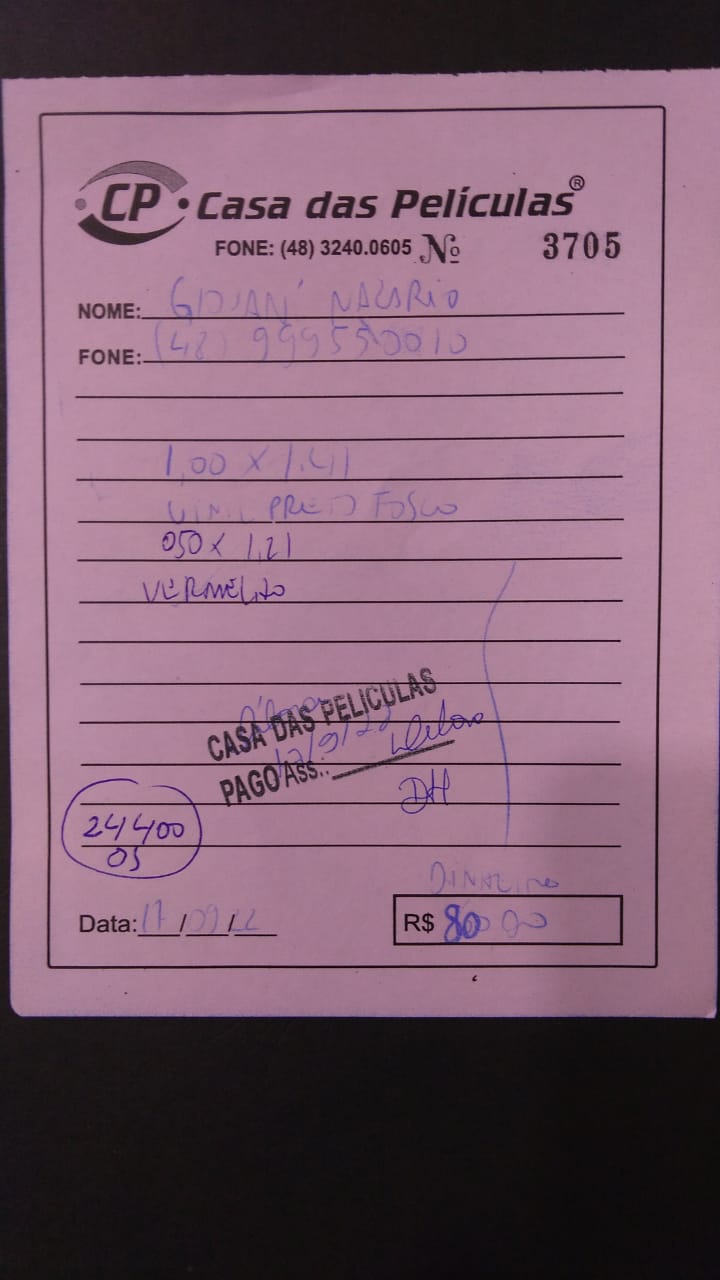 CP Casa das Películas®
FONE: (48) 3240.0605 Nº 3705
NOME: GIOVANÍ NAZARIO
FONE: (48) 999550010
1,00 X 1.41
VINIL PRETO FOSCO
050 X 1,21
VERMELHO
CASA DAS PELICULAS
17/9/22
PAGO Ass.:
DH
24400
OS
DINHEIRO
Data: 17/09/22 R$ 80,00